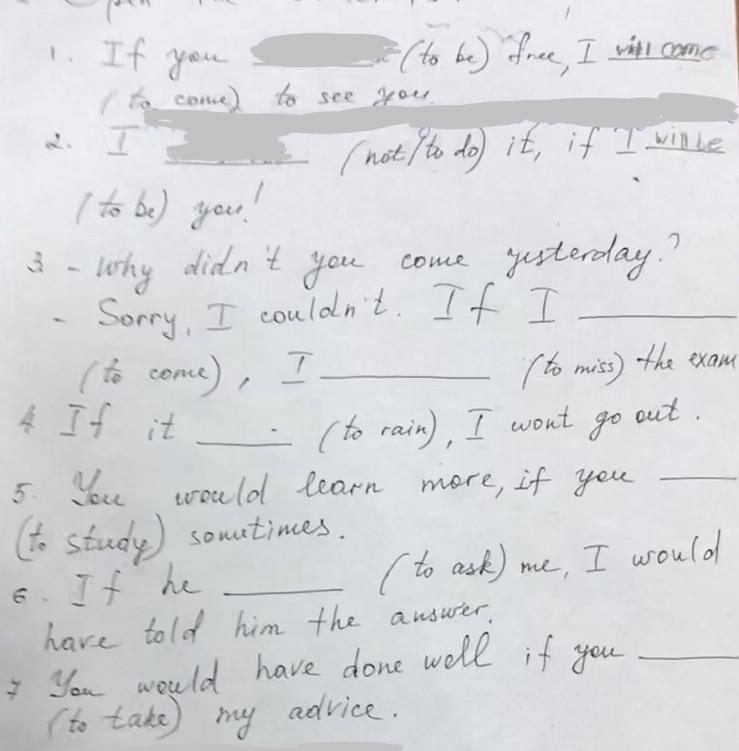 1. If you (to be) free, I will come
(to come) to see you.
2. I (not/to do) it, if I will be
(to be) you!
3 - Why didn't you come yesterday?
- Sorry, I couldn't. If I ______
(to come), I ______ (to miss) the exam
4 If it ____ (to rain), I wont go out.
5. You would learn more, if you ____
(to study) sometimes.
6. If he ____ (to ask) me, I would
have told him the answer.
7 You would have done well if you ____
(to take) my advice.